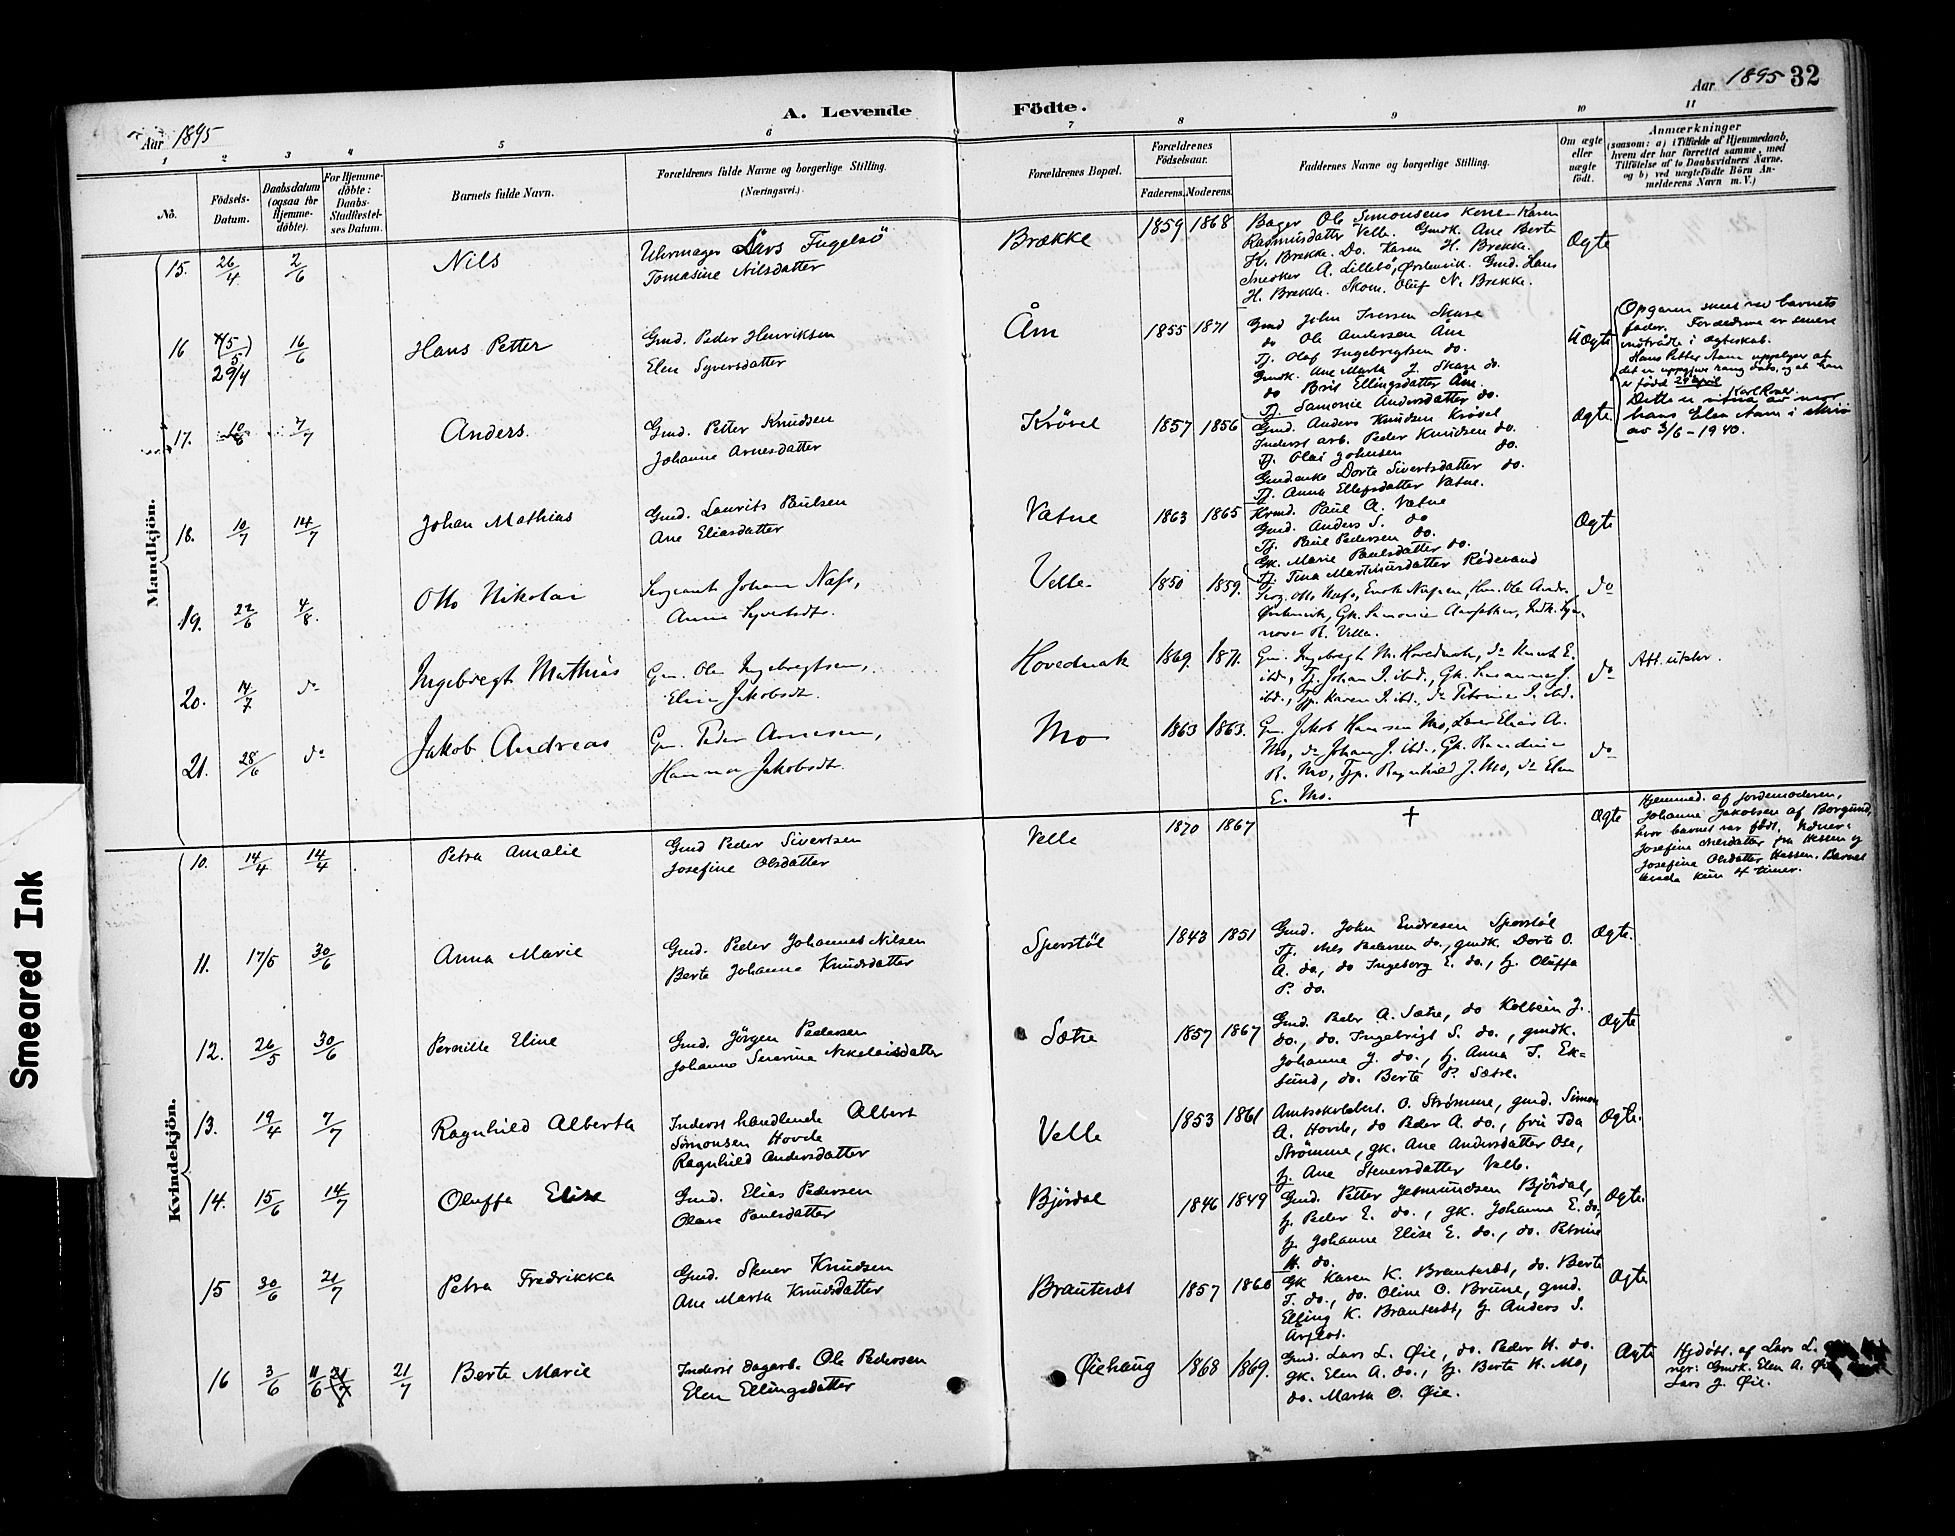 Aar 1895
A. Levende
Födte.
Aar 1895 32
1 2 3 4 5 6 7 8 9 10 11
No.
Födsels-
Datum.
Daabsdatum
(ogsaa for
Hjemme-
döbte).
For Hjemme-
döbte:
Daabs-
Stadfæstel-
ses Datum.
Barnets fulde Navn.
Forældrenes fulde Navne og borgerlige Stilling.
(Næringsvei.)
Forældrenes Bopæl.
Forældrenes
Födselsaar.
Faderens. Moderens.
Faddernes Navne og borgerlige Stilling.
Om ægte
eller
uægte
födt.
Anmærkninger
(saasom: a) i Tilfælde af Hjemmedaab,
hvem der har forrettet samme, med
Tilföielse af to Daabsvidners Navne,
og b) ved uægtefödte Börn An-
melderens Navn m. V.)
Mandkjön.
15. 26/4 2/6 Nils
Uhrmager Lars Fugelsö
Tomasine Nilsdatter
Brække 1859 1868
Bager Ole Simonsens kone Karen
Rasmusdatter Velle. Gmdk. Ane Berte
H. Brekke. Do. Karen H. Brekke.
Snedker A. Lillebö, Örstenvik. Gmd. Hans
H. Brekke. Skom. Oluf N. Brekke.
Ægte
16 29/4 16/6 Hans Petter
Gmd. Peder Henriksen
Elen Syversdatter
Åm 1855 1871
Gmd John Iversen Skare
do Ole Andersen Åm
Tj. Olaf Ingebregtsen do.
Gmdk. Ane Marta J. Skare do.
do Brit Ellingsdatter Åm.
Tj. Samonie Andersdatter do.
Uægte
Opgaven skeet ved barnets
fader. Forældrene er senere
indtrådt i ægteskab.
Hans Petter Aam oppgiver at
er född 29 april
Karl Roald
hans Elen Aam i skriv
av 3/6 - 1940.
17. 10/6 7/7 Anders.
Gmd. Petter Knudsen
Johanne Arnesdatter
Krövel 1857 1856
Gmd. Anders Knudsen Krövel
Inderst arb. Peder Knudsen do.
Tj. Olai Johnsen do.
Gmdenke Dorte Sivertsdatter do.
Tj. Anna Ellefsdatter Vatne.
Ægte
18. 10/7 14/7 Johan Mathias
Gmd. Laurits Paulsen
Ane Eliasdatter
Vatne 1863 1865
Kmd. Paul A. Vatne
Gmd. Anders S. do
Tj. Paul Pedersen do.
Gk. Marie Paulsdatter do.
Tj. Tina Martinusdatter Rödesand
Ægte
19. 22/6 4/8. Otto Nikolai
Sergeant Johan Næss,
Anne Syvertsdt.
Velle 1850 1859.
Serg. Otto Næss,
nove R. Velle.
do
20. 14/7 do Ingebregt Mathias
Gm. Ole Ingebregtsen,
Eline Jakobsdt.
Hovednak 1869. 1871.
Gm. Ingebregt M. Hovednak, do Knut E.
ibd., Tj. Johan I. ibd., Gk. Susanne J.
ibd., Tjp. Karen I. ibd., do Petrine I. ibd.
do
Att. utskr.
21. 28/6 do Jakob Andreas
Gm. Peder Arnesen,
Hanna Jakobsdt.
Mo 1863 1863.
Gm. Jakob Hansen Mo, Lærer Elias A.
Mo, do Johan J. ibd., Gk. Randine
R. Mo, Tjp. Ragnhild J. Mo, do Elen
E. Mo.
do
Kvindekjön.
10. 14/4 14/4 Petra Amalie
Gmd Peder Sivertsen
Josefine Olsdatter
Velle 1870 1867
†
Ægte
Hjemmed. af jordemoderen,
Johanne Jakobsen af Borgund,
hvor barnet var födt. Vidner:
Josefine Nilsdatter fra Hessen og
Josefine Olsdatter Hessen. Barnet
levede kun 4 timer.
11. 17/5 30/6 Anna Marie
Gmd. Peder Johannes Nilsen
Berte Johanne Knudsdatter
Sperstöl 1843 1851
Gmd. John Endresen Sperstöl
Tj. Nils Pedersen do., gmdk. Dorte O.
A. do, do Ingeborg E. do., tj. Oluffa
P. do.
Ægte.
12. 26/5 30/6 Pernille Eline
Gmd. Jörgen Pedersen
Johanne Severine Nikolaisdatter
Sætre 1857 1867
Gmd. Peder A. Sætre, do Kolbein J.
do., do. Ingebrigt S. do., gmdk.
Johanne J. do., tj. Anna T. Ek-
sund, do. Berte P. Sætre.
Ægte
13. 19/4 7/7 Ragnhild Alberta
Inderst handlende Albert
Simonsen Hovde
Ragnhild Andersdatter
Velle 1853 1861
Amtsskolebest. O. Strömme, gmd. Simon
A. Hovde, do Peder A. do., fru Ida
Strömme, gk. Ane Andersdatter Ose,
tj. Ane Steinersdatter Velle.
Ægte.
14. 15/6 14/7 Oluffa Elise
Gmd. Elias Pedersen
Olave Paulsdatter
Björdal 1846 1849
Gmd. Petter Jetmundsen Björdal,
tj. Peder E. do., gk. Johanne E. do,
tj Johanne Elise E. do., do. Petrine
H. do.
Ægte.
15 30/6 21/7 Petra Fredrikka
Gmd. Stener Knudsen
Ane Marta Knudsdatter
Brauteset 1857 1860
Gk Karen K. Brauteset, do. Berte
T. do., do. Oline O. Brune, gmd.
Elling K. Brauteset, tj Anders S.
Årflot.
Ægte
16 3/6 11/6 21/7 21/7 Berte Marie
Inderst dagarb. Ole Pedersen
Elen Ellingsdatter
Öiehaug 1868 1869.
Gmd. Lars L. Öie, do. Peder H. do.
gk. Elen A. do., tj. Berte H. Mo,
do. Marta O. Öie.
Ægte
Hjdöbt. af Lars L.
ner: Gmdk. Elen A. Öie
Lars J. Öie.
Smeared Ink